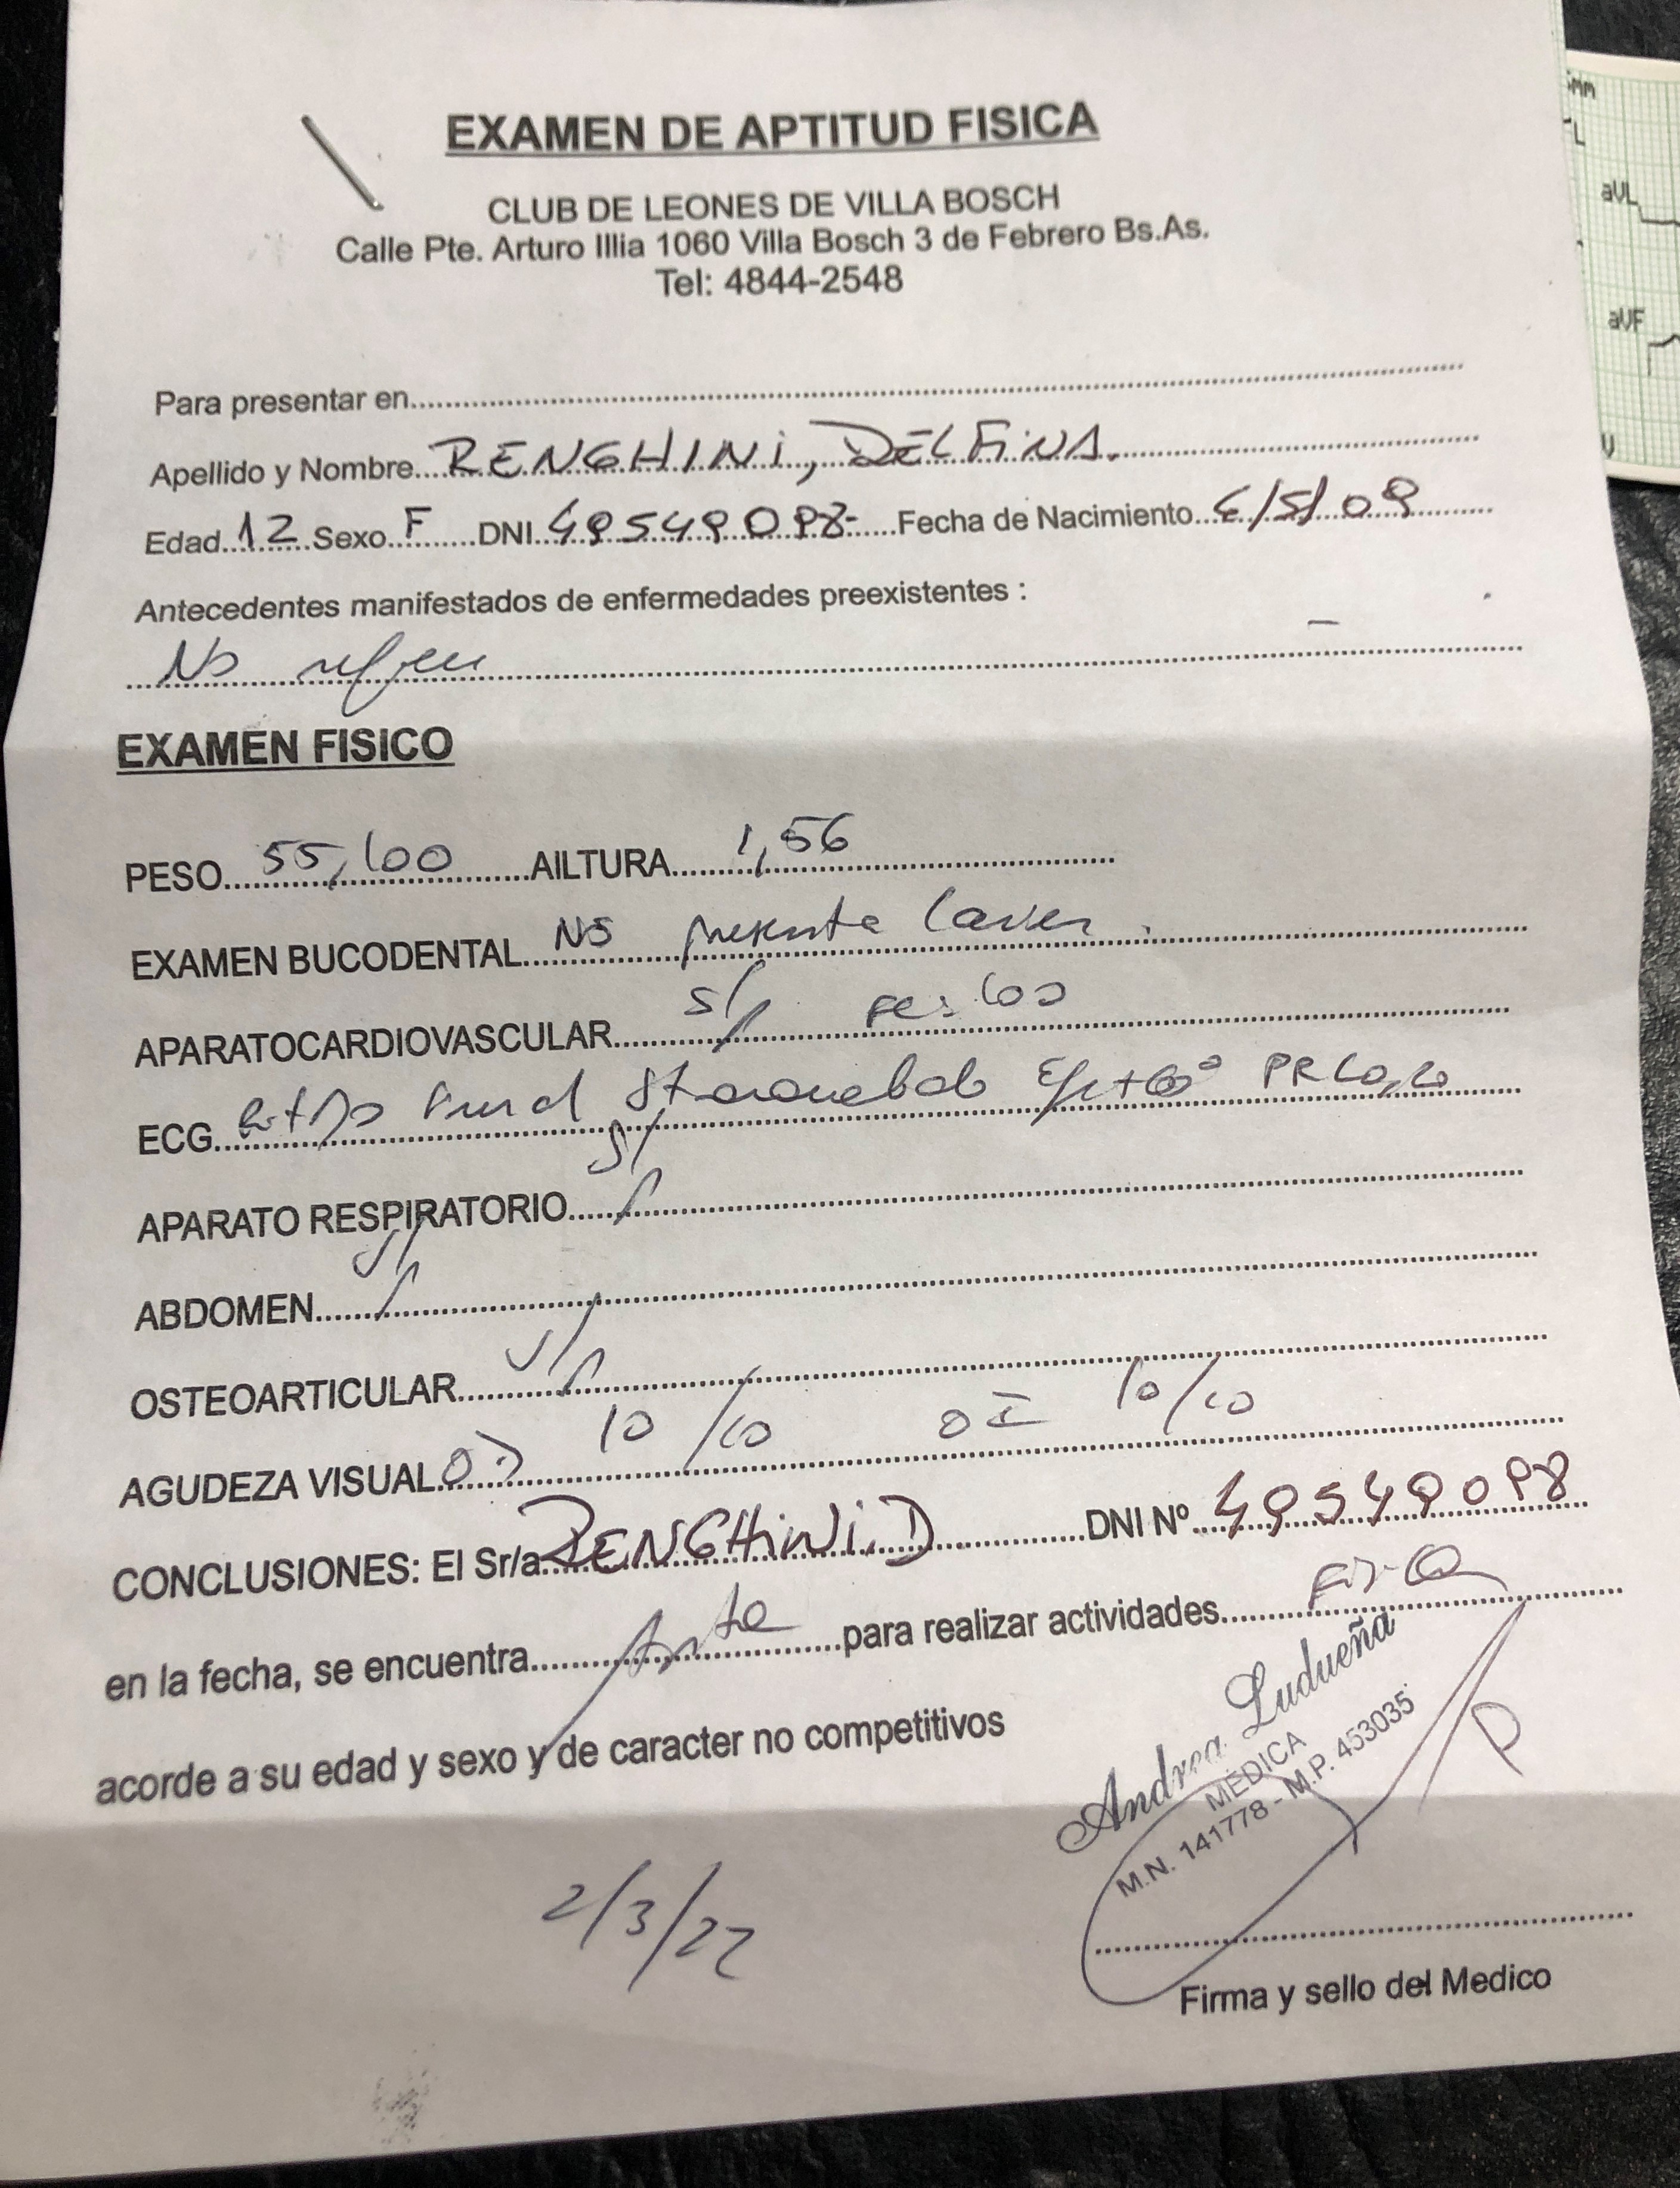 EXAMEN DE APTITUD FISICA
CLUB DE LEONES DE VILLA BOSCH
Calle Pte. Arturo Illia 1060 Villa Bosch 3 de Febrero Bs.As.
Tel: 4844-2548
Para presentar en
Apellido y Nombre RENGHINI, DELFINA.
Edad 12 Sexo F DNI 49549098- Fecha de Nacimiento 6/5/09
Antecedentes manifestados de enfermedades preexistentes :
No refiere
EXAMEN FISICO
PESO 55,100 AILTURA 1,56
EXAMEN BUCODENTAL No presenta caries.
APARATOCARDIOVASCULAR s/p FC: 100
ECG Ritmo PR
APARATO RESPIRATORIO s/p
ABDOMEN s/p
OSTEOARTICULAR s/p
AGUDEZA VISUAL OD 10/10 OI 10/10
CONCLUSIONES: El Sr/a RENGHINI.D DNI Nº 49549098
en la fecha, se encuentra Apta para realizar actividades
acorde a su edad y sexo y de caracter no competitivos
Andrea Ludueña
MEDICA
M.N. 141778 - M.P. 453035
2/3/22
Firma y sello del Medico
mm
aVL
aVF